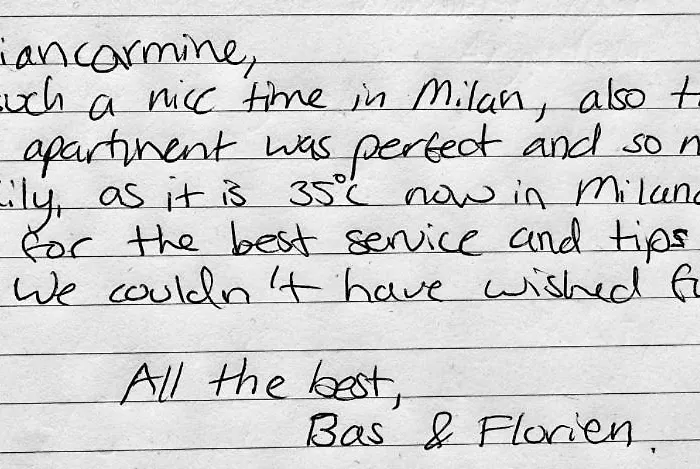 iancarmine,
such a nice time in Milan, also t
apartment was perfect and so n
ily, as it is 35°C now in Milano
for the best service and tips
We couldn't have wished fo
All the best,
Bas & Florien.